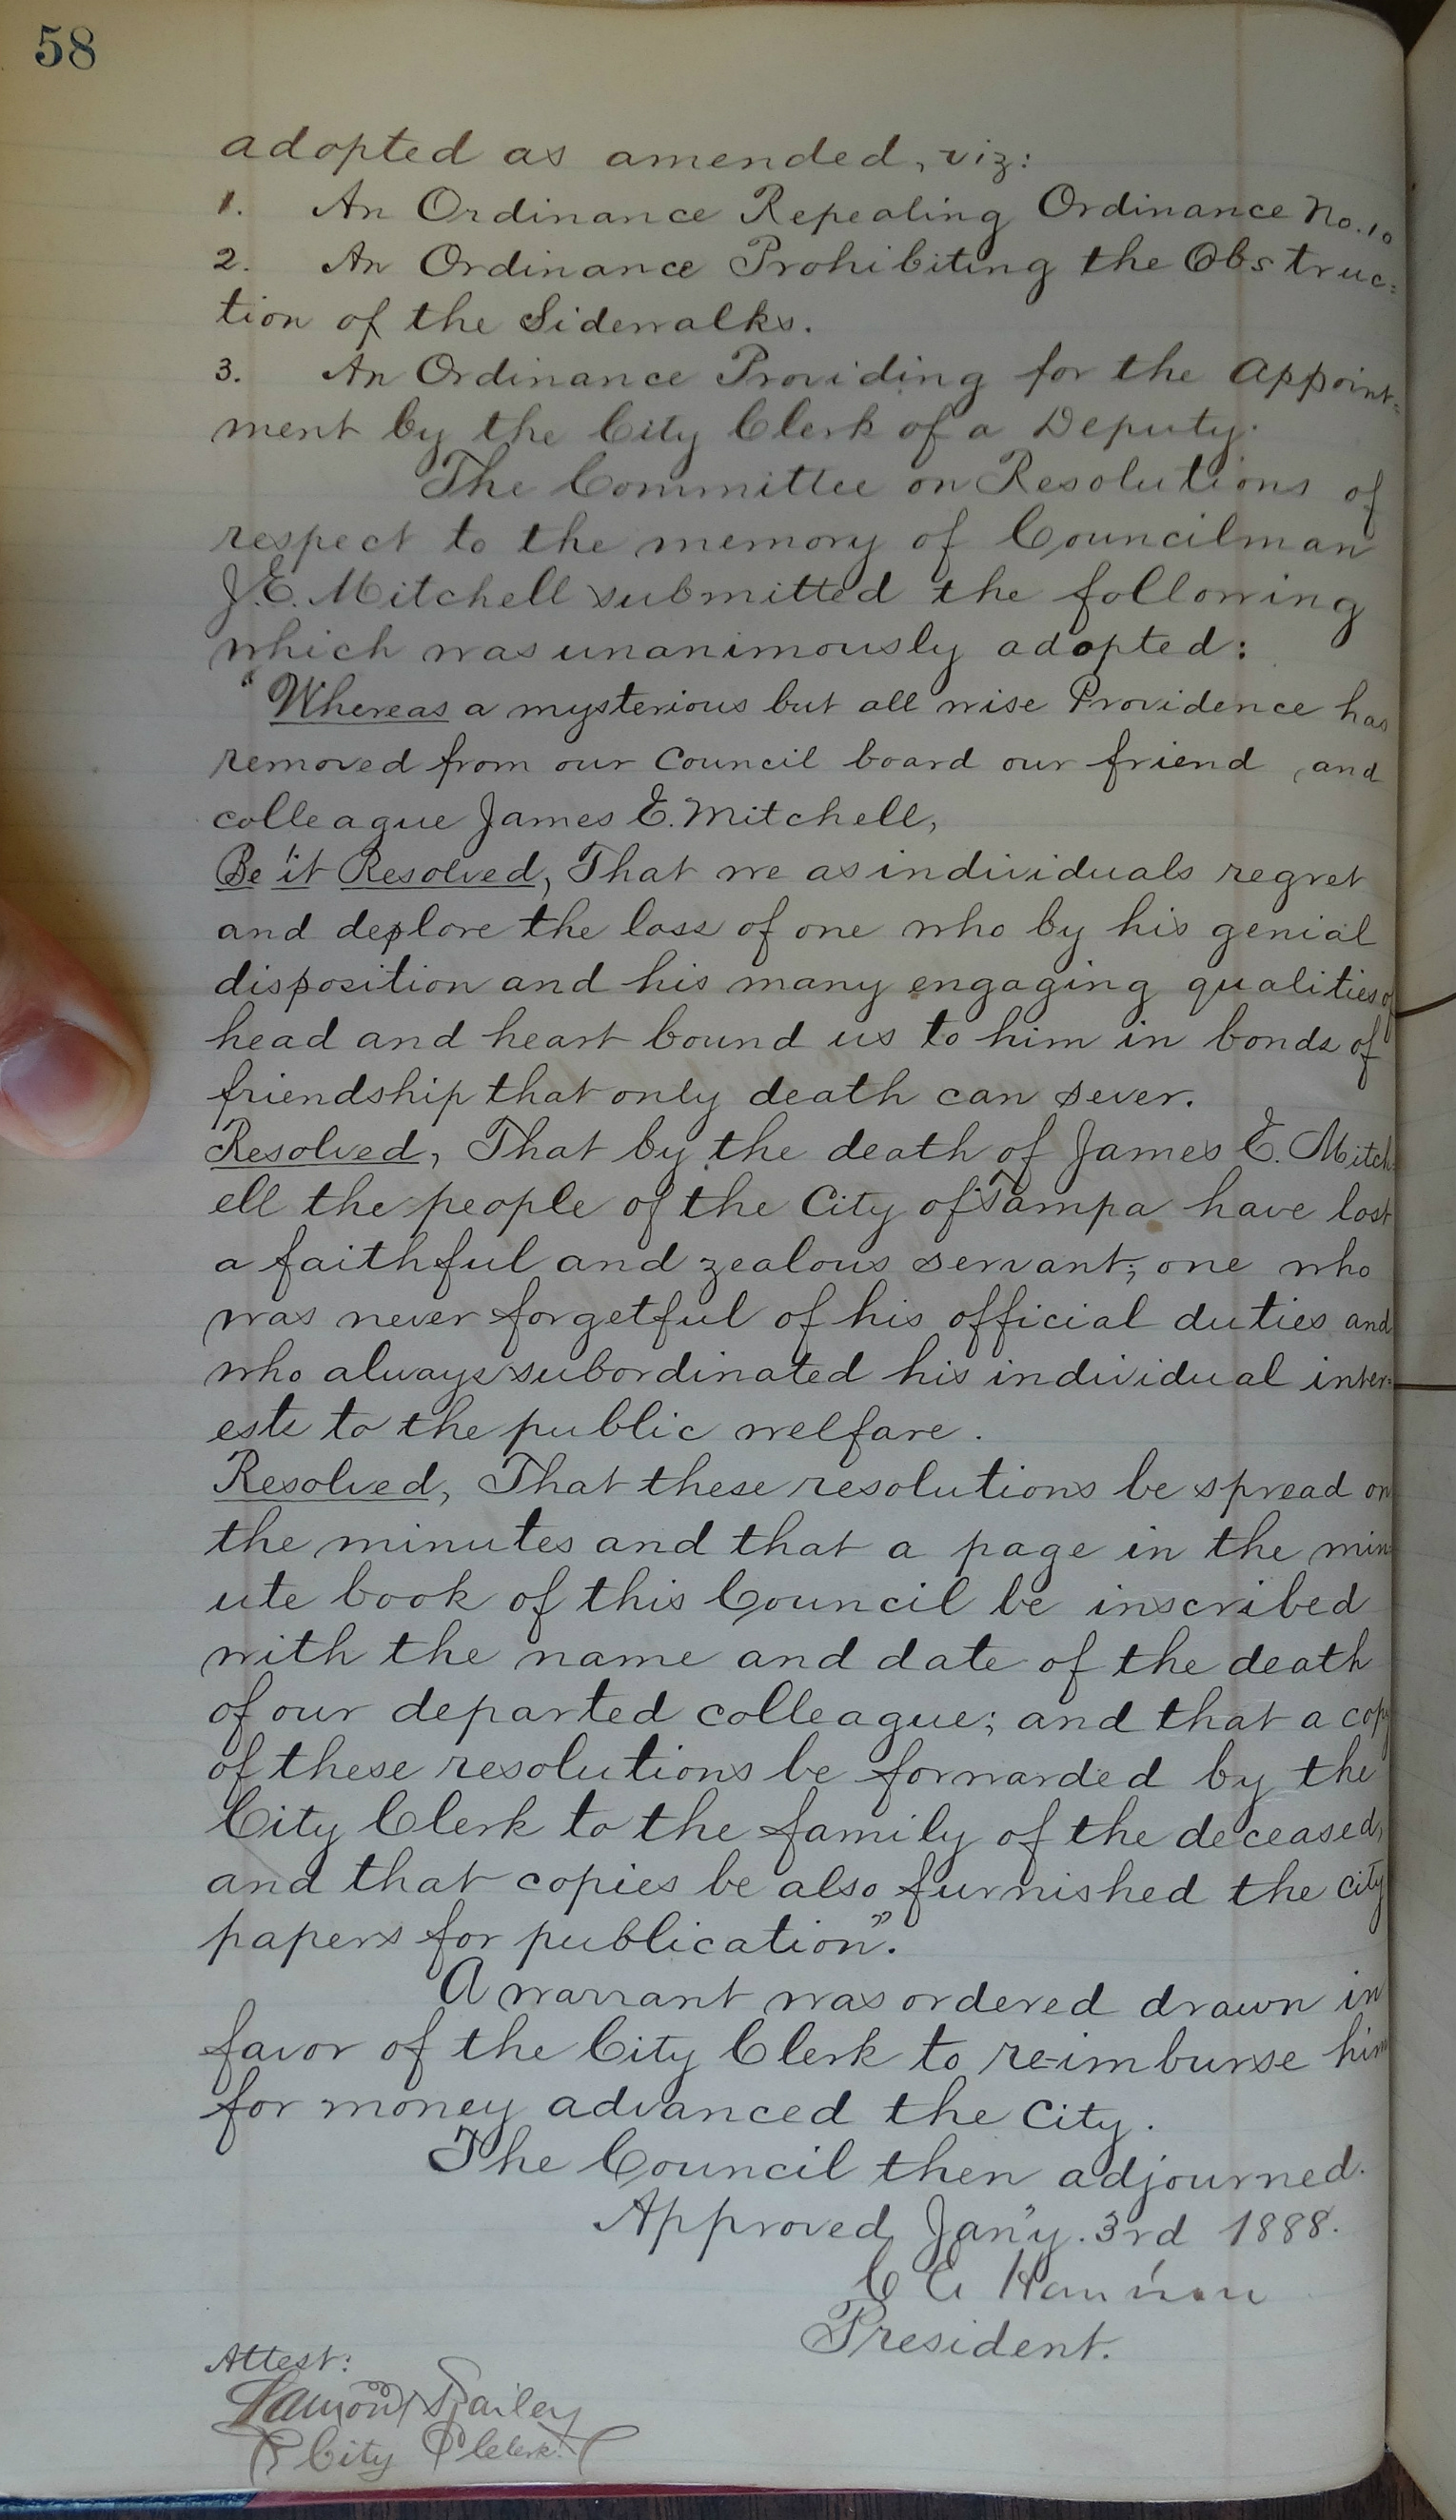 58
adopted as amended, viz:
1. An Ordinance Repealing Ordinance No. 10
2. An Ordinance Prohibiting the Obstruc=
tion of the Sidewalks.
3. An Ordinance Providing for the Appoint=
ment by the City Clerk of a Deputy.
The Committee on Resolutions of
respect to the memory of Councilman
J.E. Mitchell submitted the following
which was unanimously adopted:
"Whereas a mysterious but all wise Providence has
removed from our Council board our friend, and
colleague James E. Mitchell,
Be it Resolved, That we as individuals regret
and deplore the loss of one who by his genial
disposition and his many engaging qualities of
head and heart bound us to him in bonds of
friendship that only death can sever.
Resolved, That by the death of James E. Mitch
ell the people of the City of Tampa have lost
a faithful and zealous servant; one who
was never forgetful of his official duties and
who always subordinated his individual inter=
ests to the public welfare.
Resolved, That these resolutions be spread on
the minutes and that a page in the min
ute book of this Council be inscribed
with the name and date of the death
of our departed colleague; and that a copy
of these resolutions be forwarded by the
City Clerk to the family of the deceased,
and that copies be also furnished the city
papers for publication".
A warrant was ordered drawn in
favor of the City Clerk to re-imburse him
for money advanced the City.
The Council then adjourned.
Approved Jan'y. 3rd 1888.
C E
President.
Attest:
Lamont Bailey
City Clerk